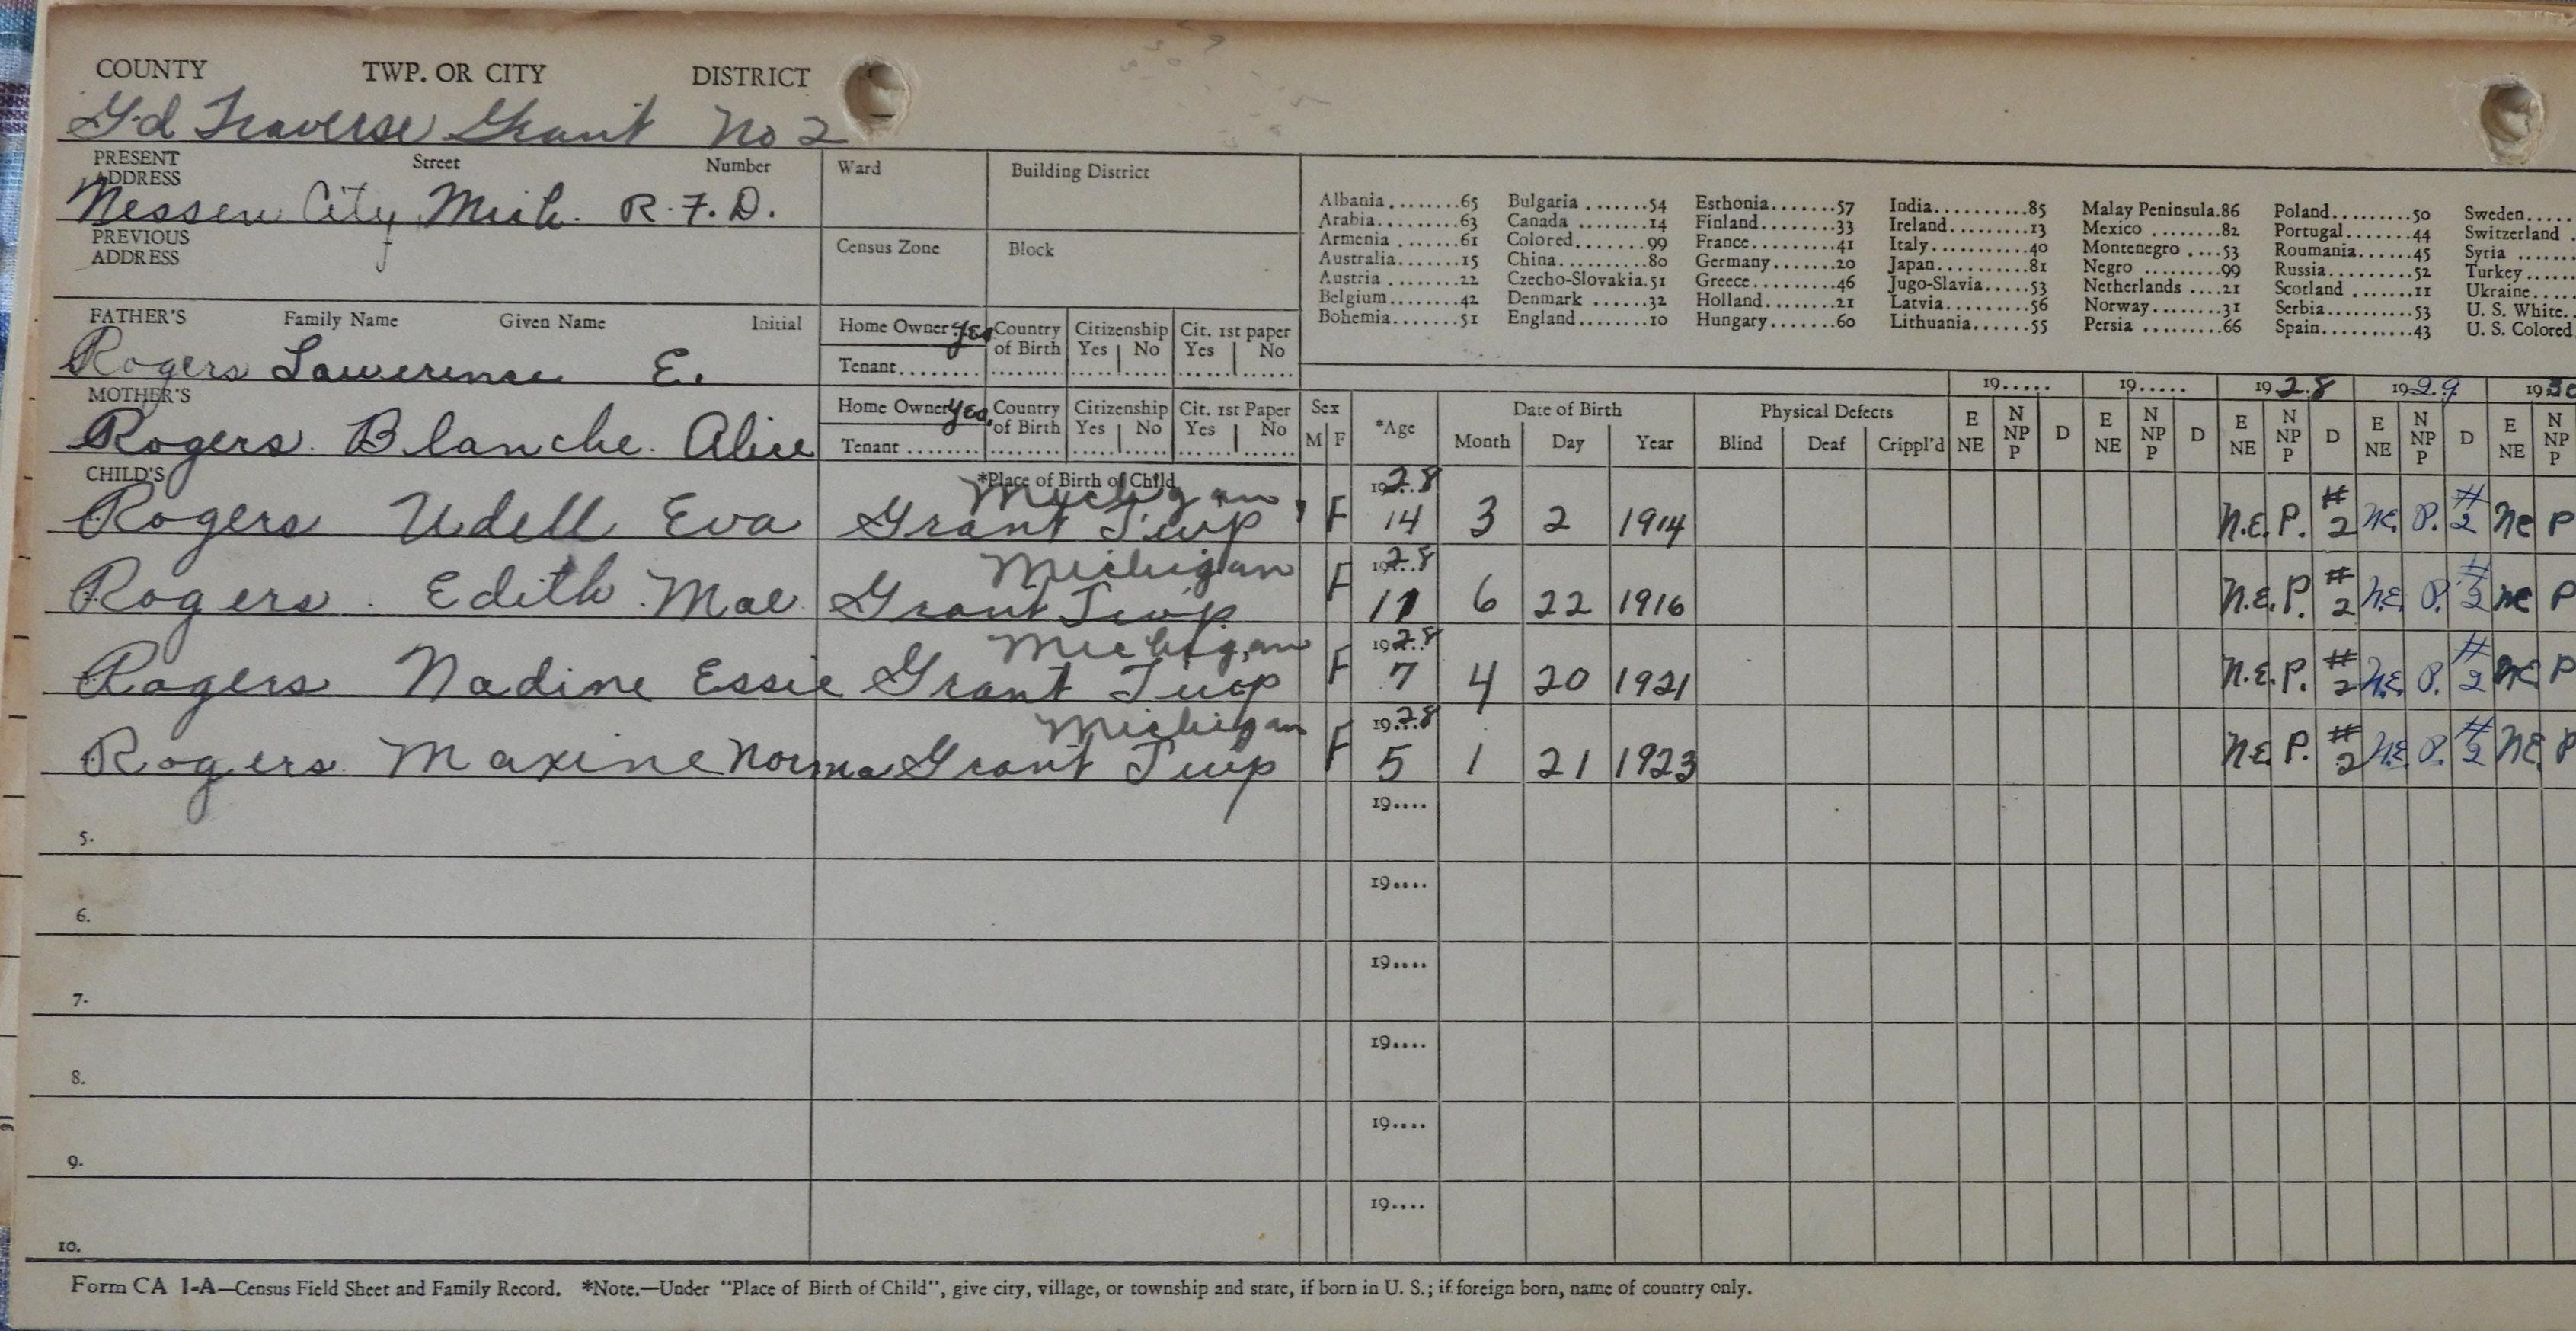 COUNTY TWP. OR CITY DISTRICT
Gd Traverse Grant No 2
PRESENT ADDRESS Street Number Ward Building District
Nessen City, Mich. R.F.D.
PREVIOUS ADDRESS Census Zone Block
Albania........65 Bulgaria.......54 Esthonia.......57 India..........85 Malay Peninsula.86 Poland.........50 Sweden.....
Arabia.........63 Canada........14 Finland........33 Ireland........13 Mexico........82 Portugal.......44 Switzerland.
Armenia.......61 Colored........99 France.........41 Italy...........40 Montenegro....53 Roumania......45 Syria.......
Australia.......15 China..........80 Germany.......20 Japan..........81 Negro.........99 Russia.........52 Turkey......
Austria........22 Czecho-Slovakia.51 Greece.........46 Jugo-Slavia.....53 Netherlands....21 Scotland.......11 Ukraine....
Belgium.......42 Denmark......32 Holland........21 Latvia..........56 Norway........31 Serbia.........53 U. S. White..
Bohemia.......51 England.......10 Hungary.......60 Lithuania......55 Persia.........66 Spain..........43 U. S. Colored
FATHER'S Family Name Given Name Initial Home Owner Yes Country of Birth Citizenship Yes No Cit. 1st paper Yes No
Rogers Lawerence E. Tenant........
19..... 19..... 1928 1929 1930
MOTHER'S Home Owner Yes. Country of Birth Citizenship Yes No Cit. 1st Paper Yes No Sex M F *Age Date of Birth Month Day Year Physical Defects Blind Deaf Crippl'd E NE N NP P D E NE N NP P D E NE N NP P D E NE N NP P D E NE N NP P
Rogers. Blanche. Alice Tenant........
CHILD'S *Place of Birth of Child
Michigan 1928
Rogers Udell Eva Grant Twp F 14 3 2 1914 N.E. P. #2 N.E. P. #2 NE P
Michigan 1928
Rogers. Edith. Mae. Grant Twp. F 11 6 22 1916 N.E. P. #2 N.E. P. #2 NE P
Michigan 1928
Rogers Nadine Essie Grant Twp F 7 4 20 1921 N.E. P. #2 N.E. P. #2 NE. P
Michigan 1928
Rogers Maxine Norma Grant Twp F 5 1 21 1923 N.E. P. #2 N.E. P. #2 NE. P
19....
5.
19....
6.
19....
7.
19....
8.
19....
9.
19....
10.
Form CA 1-A—Census Field Sheet and Family Record. *Note.—Under "Place of Birth of Child", give city, village, or township and state, if born in U. S.; if foreign born, name of country only.